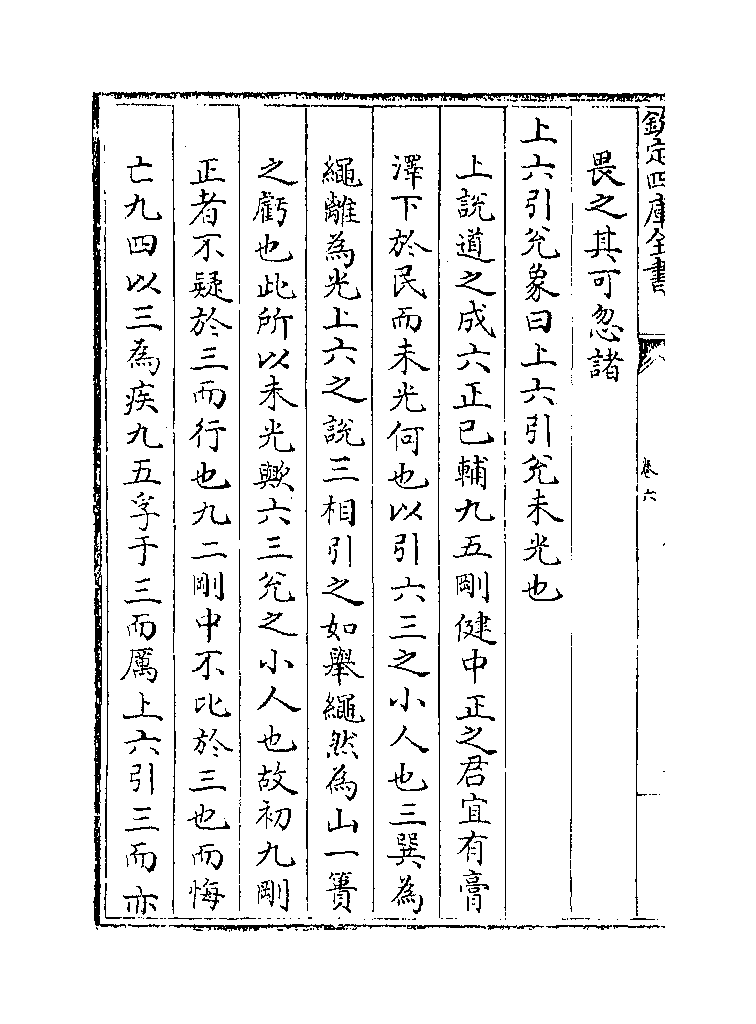 欽定四庫全書
卷六
畏之其可忽諸
上六引兊象曰上六引兊未光也
上説道之成六正已輔九五剛健中正之君宜有膏
澤下於民而未光何也以引六三之小人也三巽為
繩離為光上六之説三相引之如舉繩然為山一簣
之虧也此所以未光歟六三兊之小人也故初九剛
正者不疑於三而行也九二剛中不比於三也而悔
亡九四以三為疾九五孚于三而厲上六引三而亦